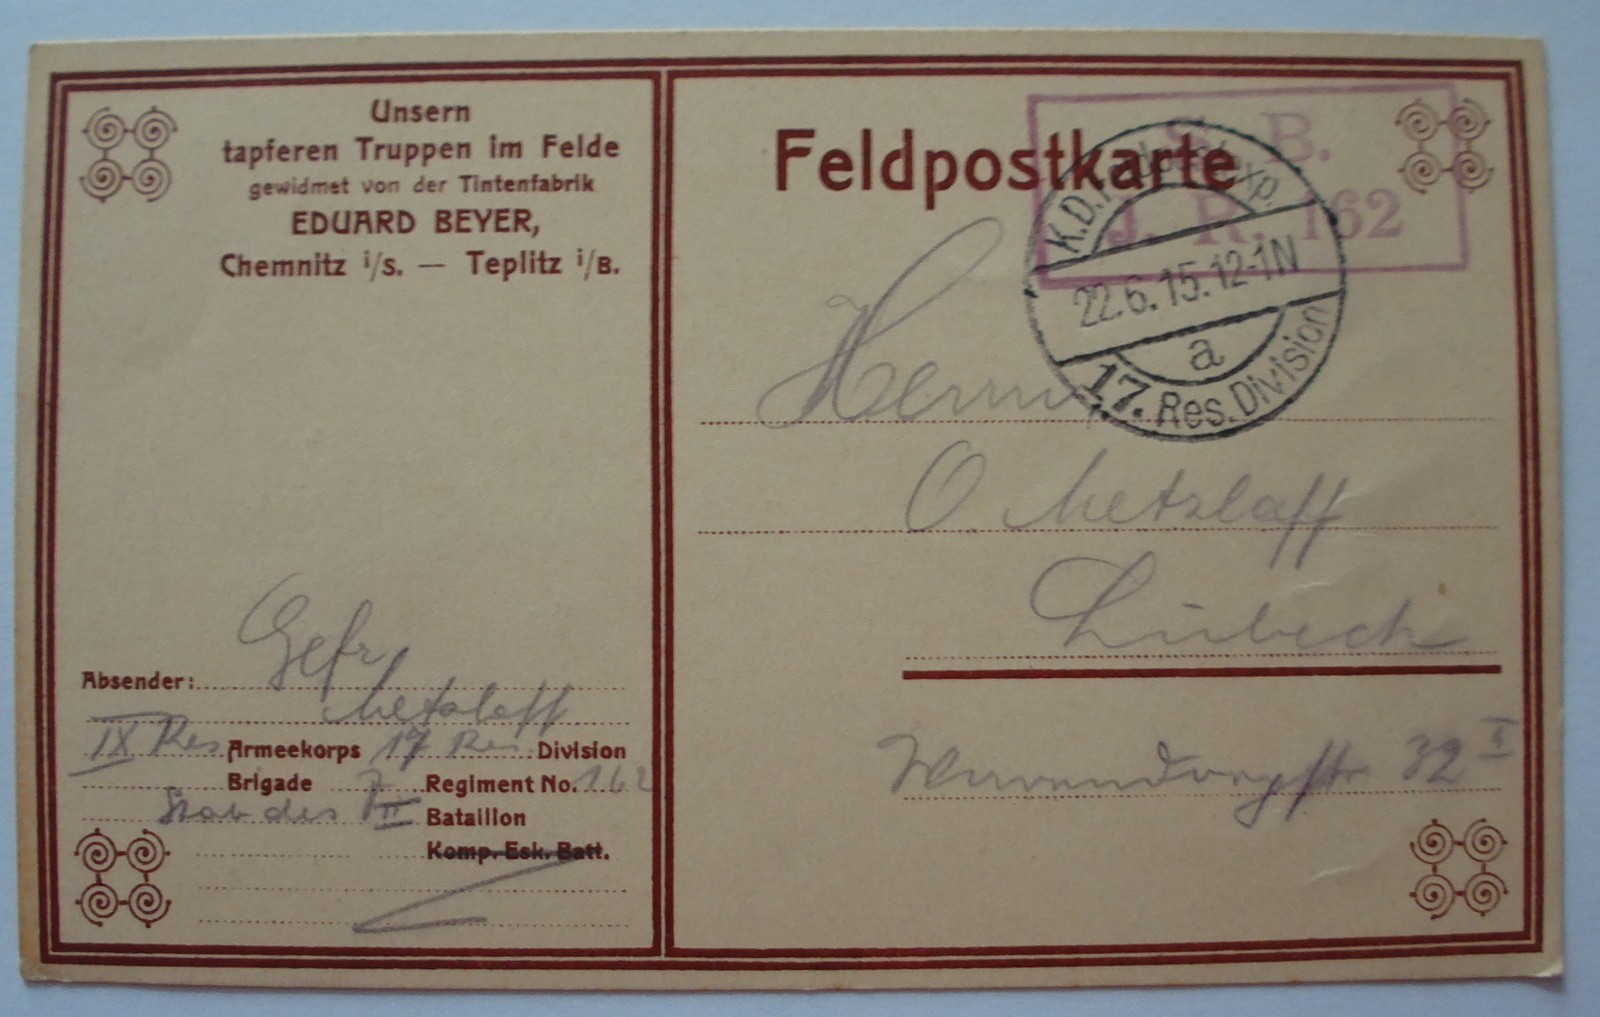 Unsern
tapferen Truppen im Felde
gewidmet von der Tintenfabrik
EDUARD BEYER,
Chemnitz i/S. — Teplitz i/B.
Absender: Gefr
Metzlaff
IX Res Armeekorps 17 Res. Division
Brigade Regiment No. 162
Stab des II Bataillon
Komp. Esk. Batt.
Feldpostkarte
S. B.
J. R. 162
K.D. Feldpostexp.
22.6.15.12-1N
a
17. Res. Division
Herrn
O. Metzlaff
Lübeck
32 I